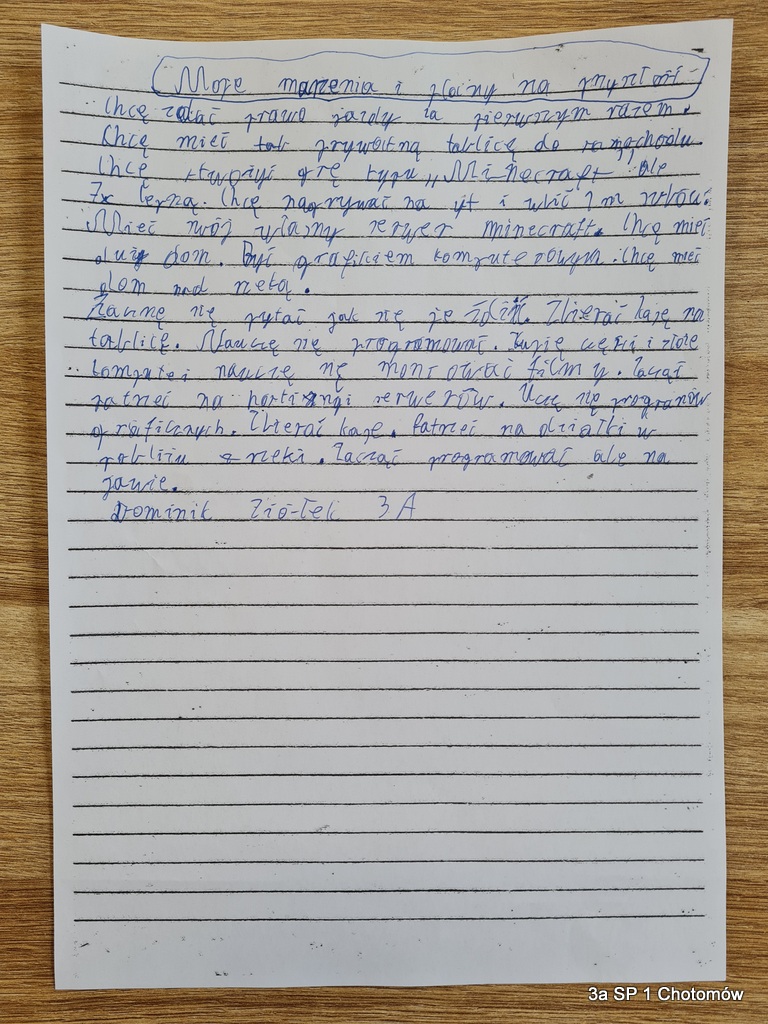 Moje marzenia i plany na przyszłość
Chcę zdać prawo jazdy za pierwszym razem.
Chcę mieć tak prywatną tablicę do samochodu
Chcę stwożyć grę typu „Minecraft" ale
7x lepszą. Chcę nagrywać na yt i wbić 1 m
Mieć swój własny serwer minecraft. Chcę mieć
duży dom. Być grafikiem komputerowym. Chcę mieć
dom nad rzeką.
Zacznę się pytać jak się je Zbierać kasę na
tablicę. Nauczę się programować. Kupię części i złożę
komputer nauczę się montować filmy. Zacząć
patrzeć na hostingi serwerów. Uczę się programów
graficznych. Zbierać kasę. Patrzeć na działki w
pobliżu rzeki. Zacząć programować ale na
jawie.
Dominik Ziółek 3A
3a SP 1 Chotomów